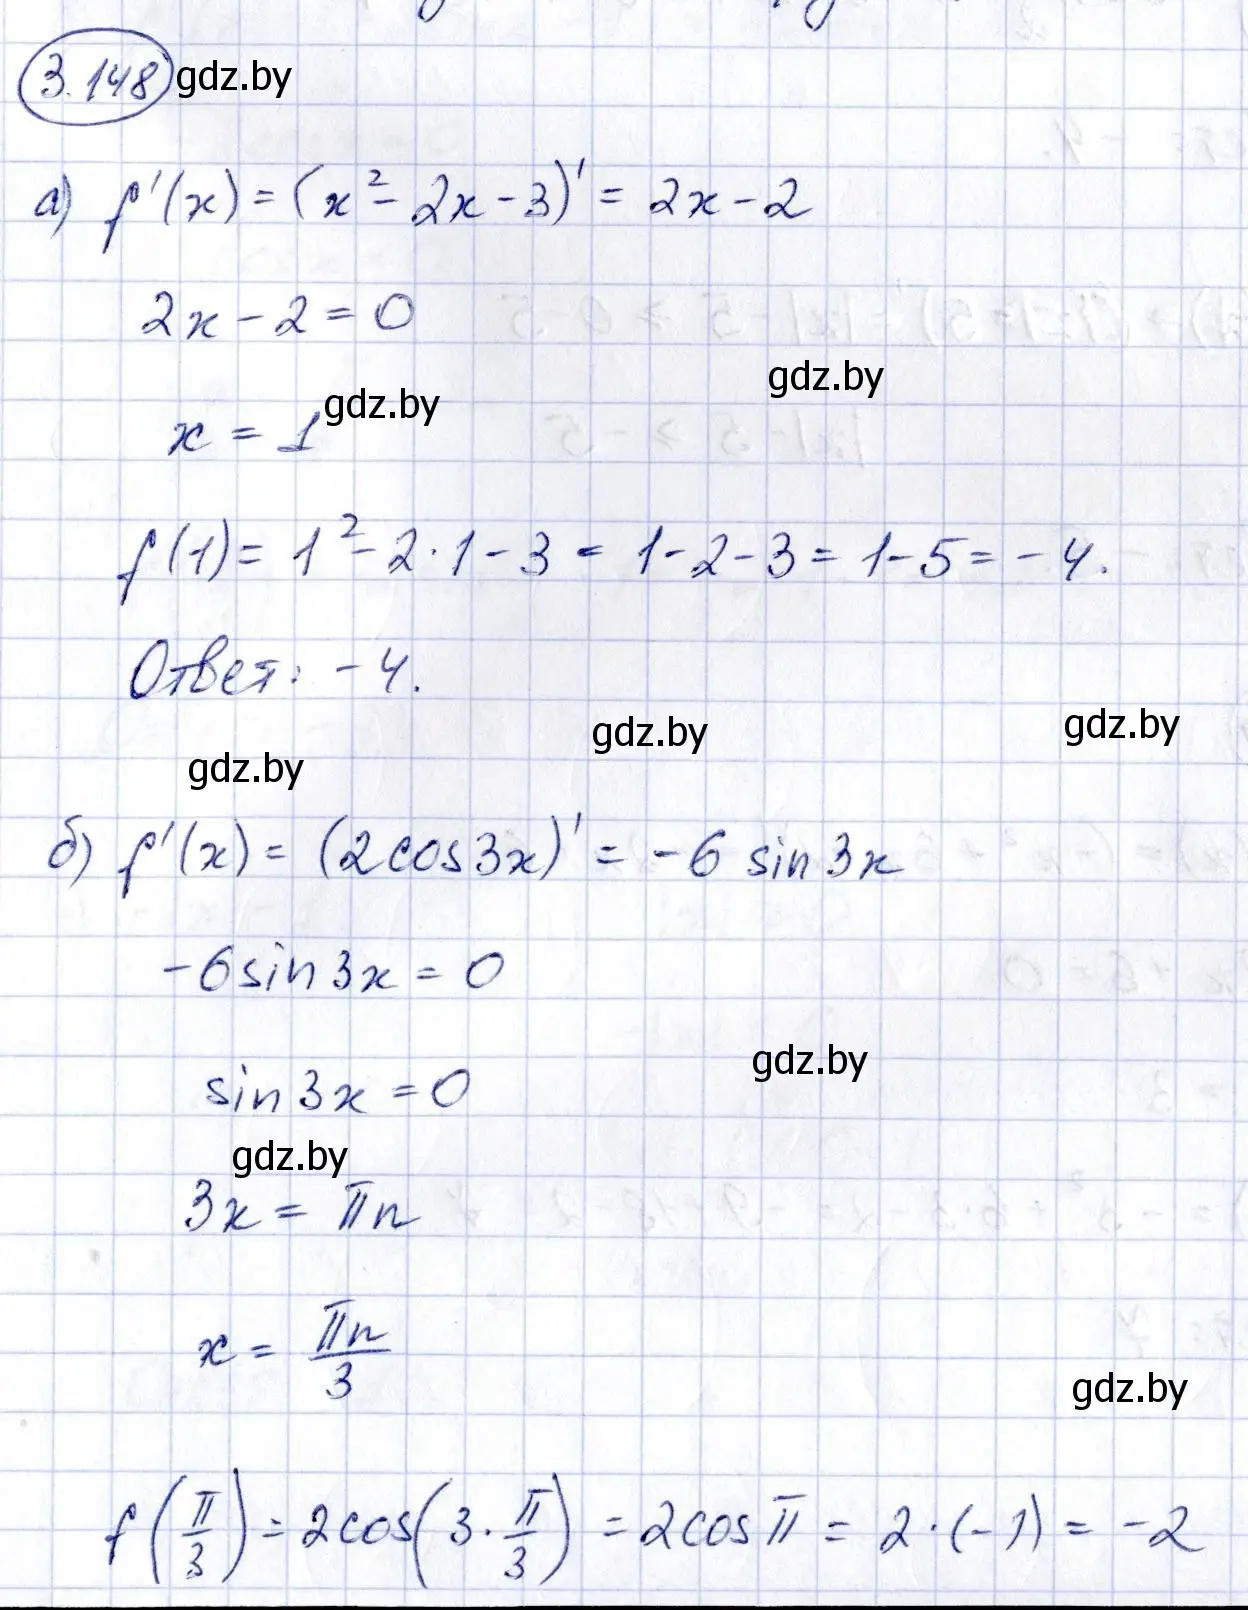 3.148 gdz.by
а) f'(x) = (x² - 2x - 3)' = 2x - 2
2x - 2 = 0
gdz.by
x = 1 gdz.by
f(1) = 1² - 2·1 - 3 = 1 - 2 - 3 = 1 - 5 = -4.
Ответ: -4.
gdz.by gdz.by gdz.by
б) f'(x) = (2cos3x)' = -6 sin3x
-6sin3x = 0
gdz.by
sin3x = 0
gdz.by
3x = πn
x = πn/3
gdz.by
f(π/3) = 2cos(3·π/3) = 2cosπ = 2·(-1) = -2